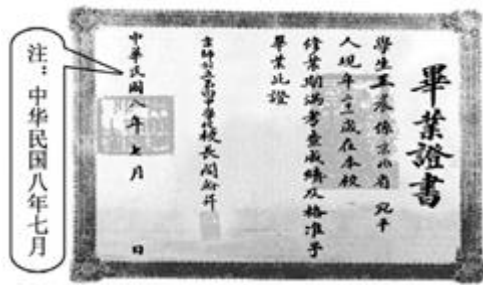 畢業證書
學生王 係京兆省宛平
人現年 歲在本校
修業期滿考查成績及格准予
畢業此證
京師公立第 中學校校長閻
中華民國八年七月 日
注：中华民国八年七月